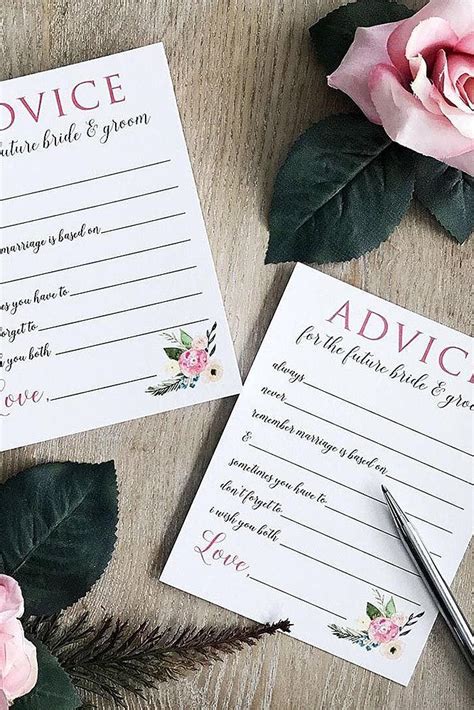 DVICE
future bride & groom
marriage is based on
you have to
forget to
you both
Love,
ADVICE
for the future bride & groom
always
never
remember marriage is based on
&
sometimes you have to
don't forget to
i wish you both
Love,